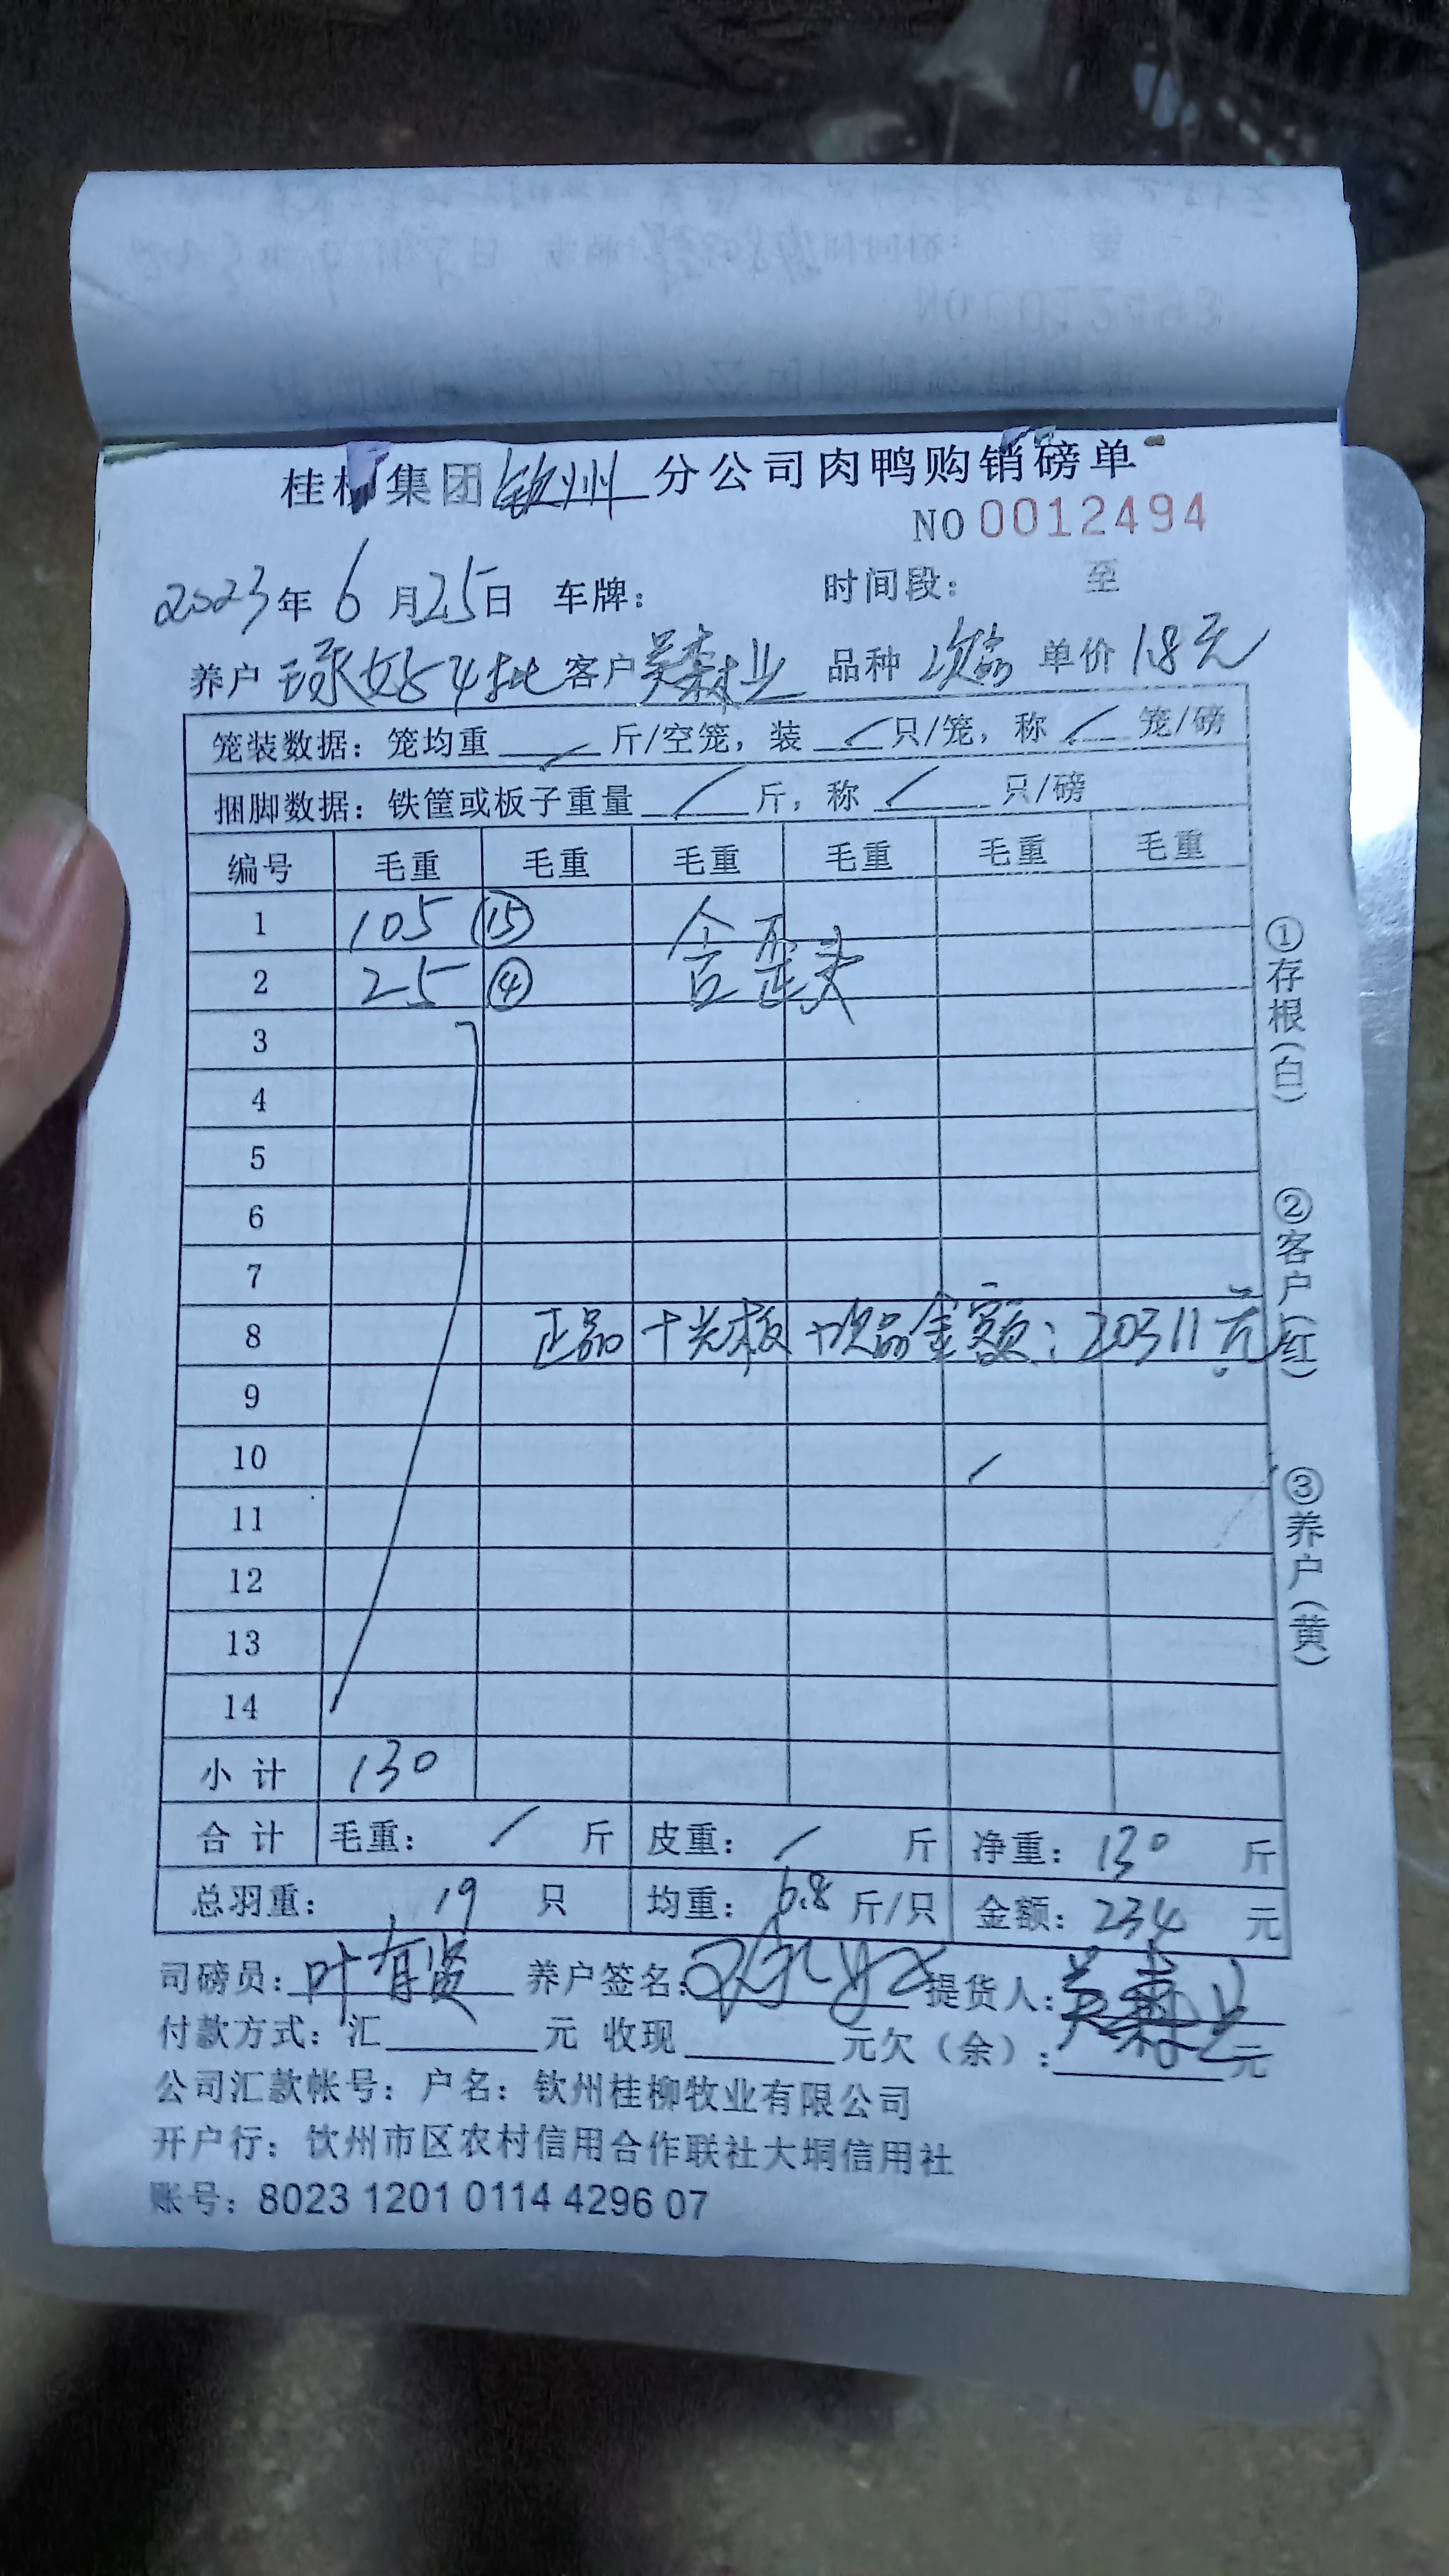 桂柳集团钦州分公司肉鸭购销磅单
NO 0012494
2023年6月25日 车牌： 时间段： 至
养户 球好54批 客户 吴森业 品种 次品 单价 1.8元
笼装数据：笼均重 / 斤/空笼，装 / 只/笼，称 / 笼/磅
捆脚数据：铁筐或板子重量 / 斤，称 / 只/磅
编号 毛重 毛重 毛重 毛重 毛重 毛重
1 105 ⑮
2 25 ④ 含歪头
3
4
5
6
7
8 正品+光板+次品金额：20311元
9
10
11
12
13
14
小计 130
合计 毛重： / 斤 皮重： / 斤 净重：130 斤
总羽重： 19 只 均重：6.8 斤/只 金额：234 元
司磅员：叶有贤 养户签名： 提货人：吴森业
付款方式：汇 元 收现 元欠（余）： 元
公司汇款帐号：户名：钦州桂柳牧业有限公司
开户行：钦州市区农村信用合作联社大垌信用社
账号：8023 1201 0114 4296 07
①存根（白）
②客户（红）
③养户（黄）